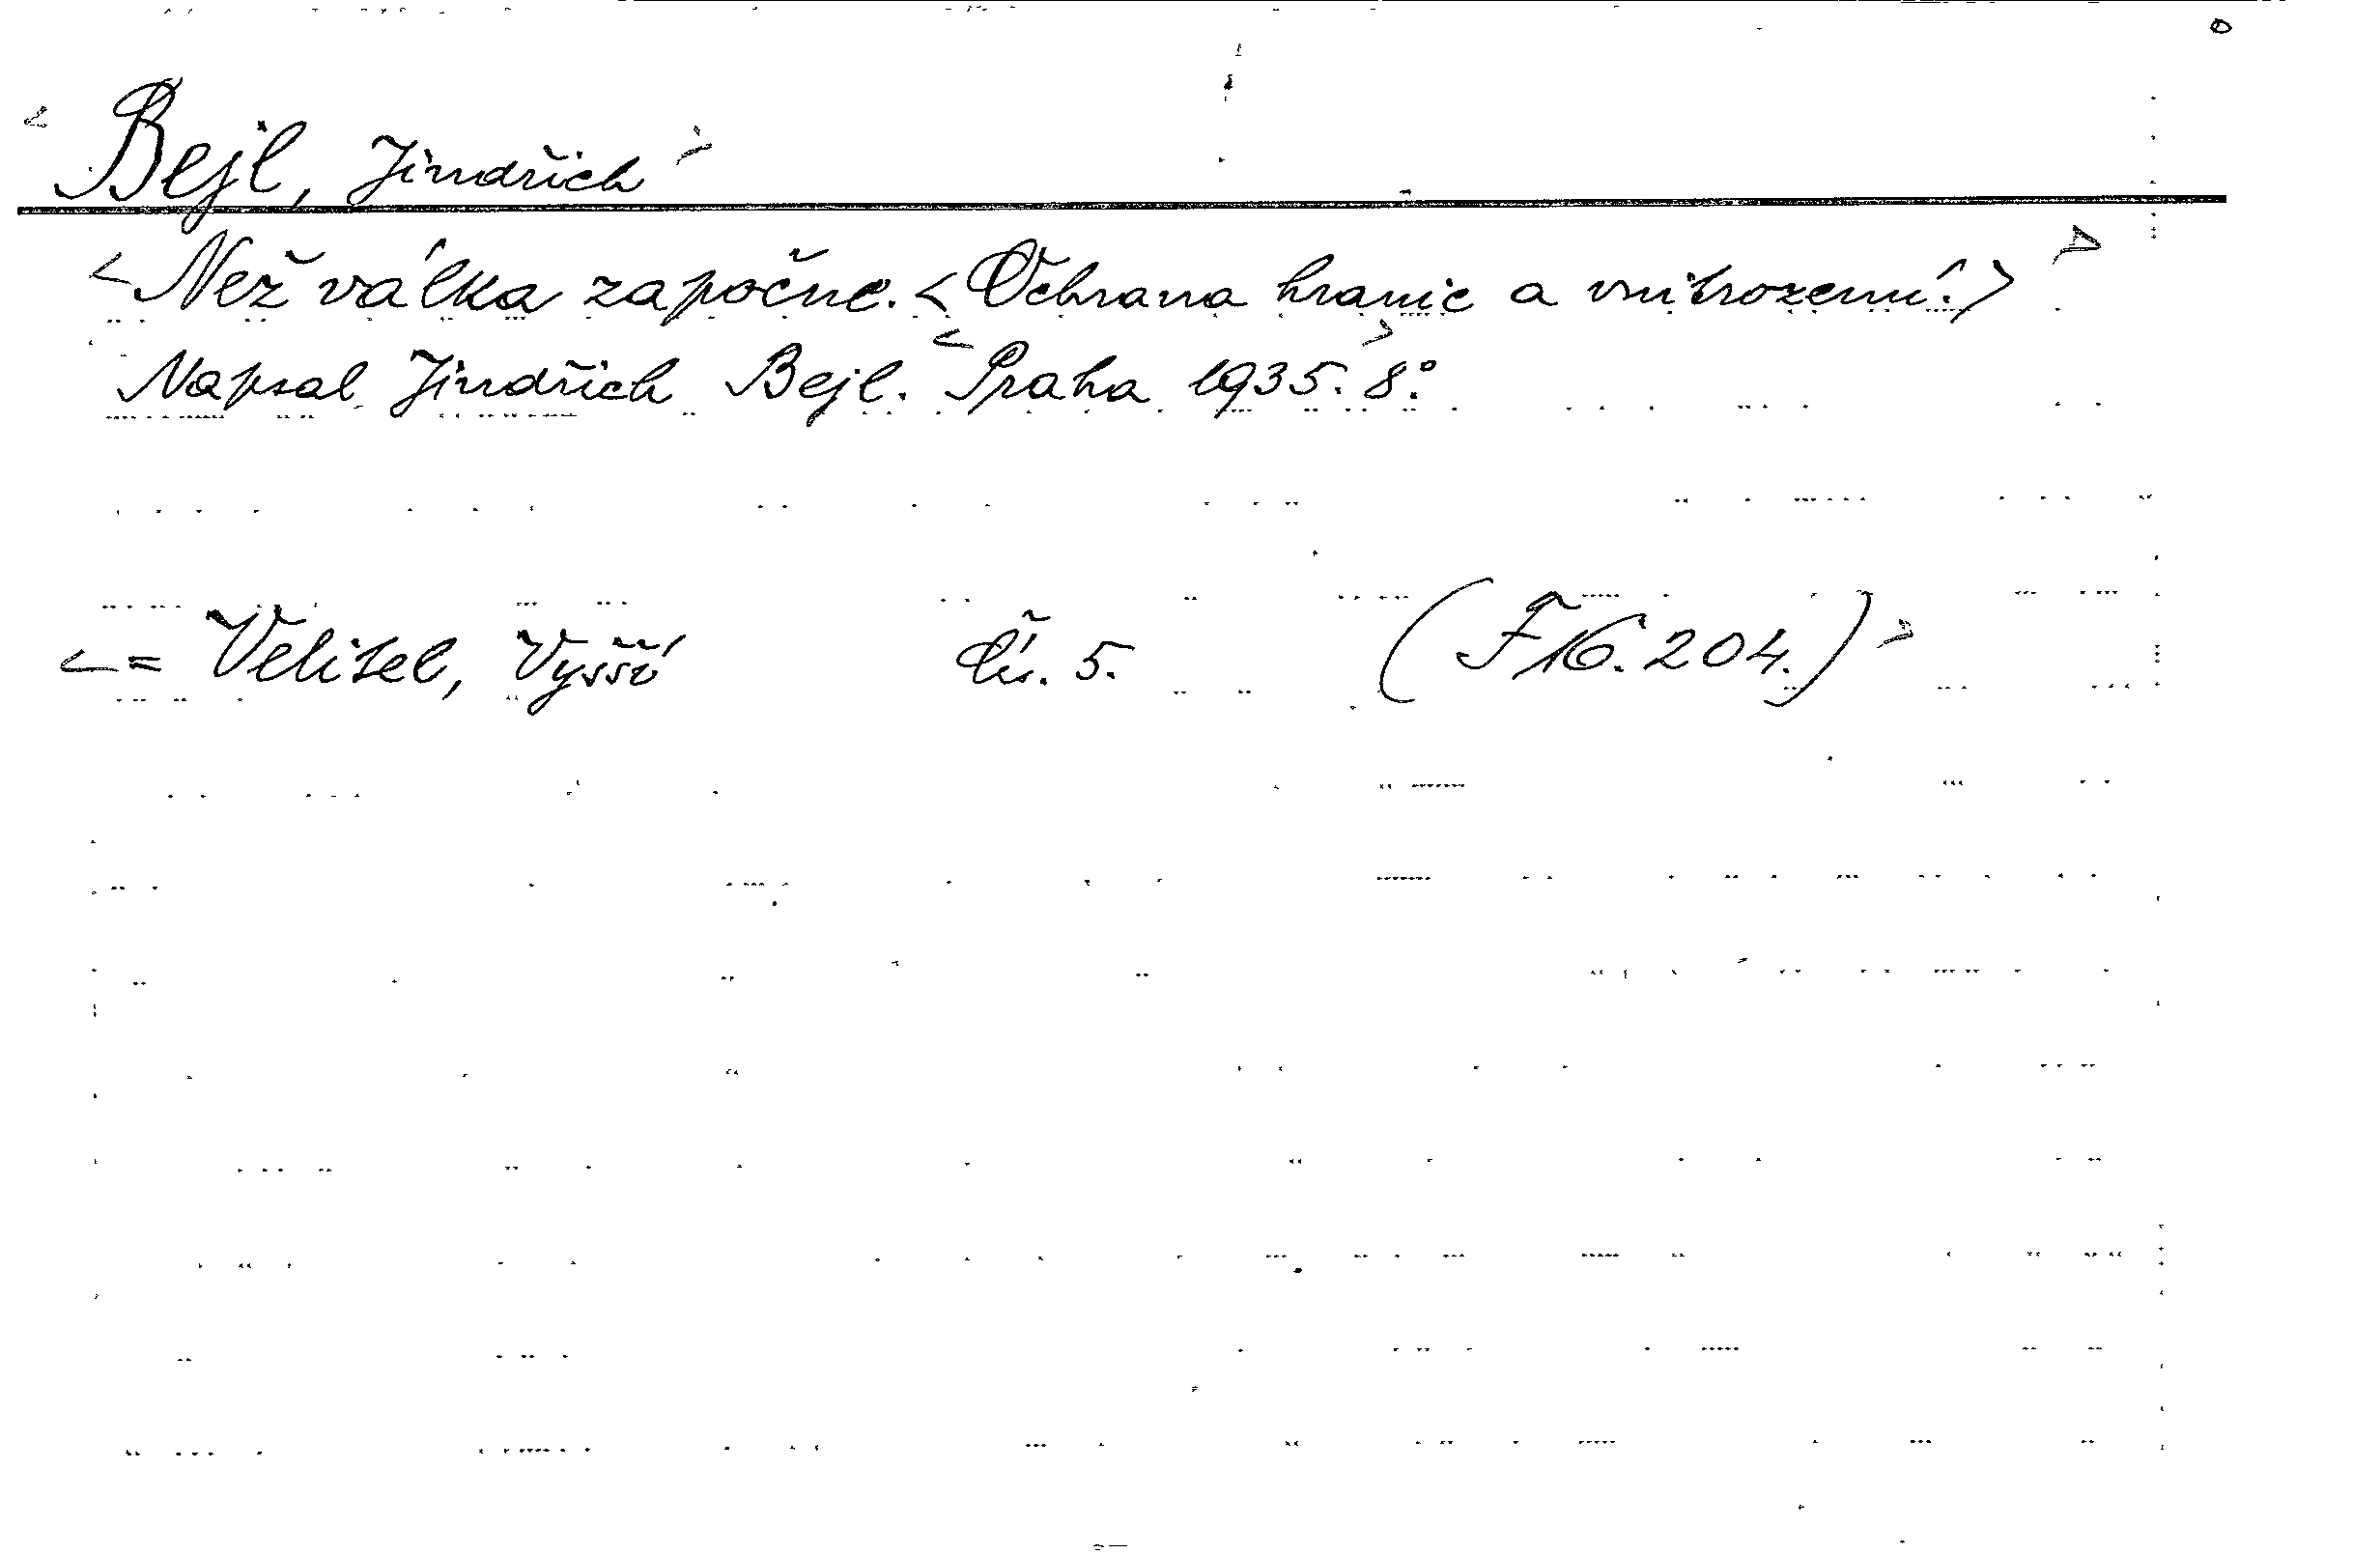 < Bejl, Jindřich >
< Než válka započne. < Ochrana hranic a vnitrozemí. > >
Napsal Jindřich Bejl. < Praha 1935. > 8°.
< = Velitel, Vyšší Čís. 5. (F 16. 204.) >